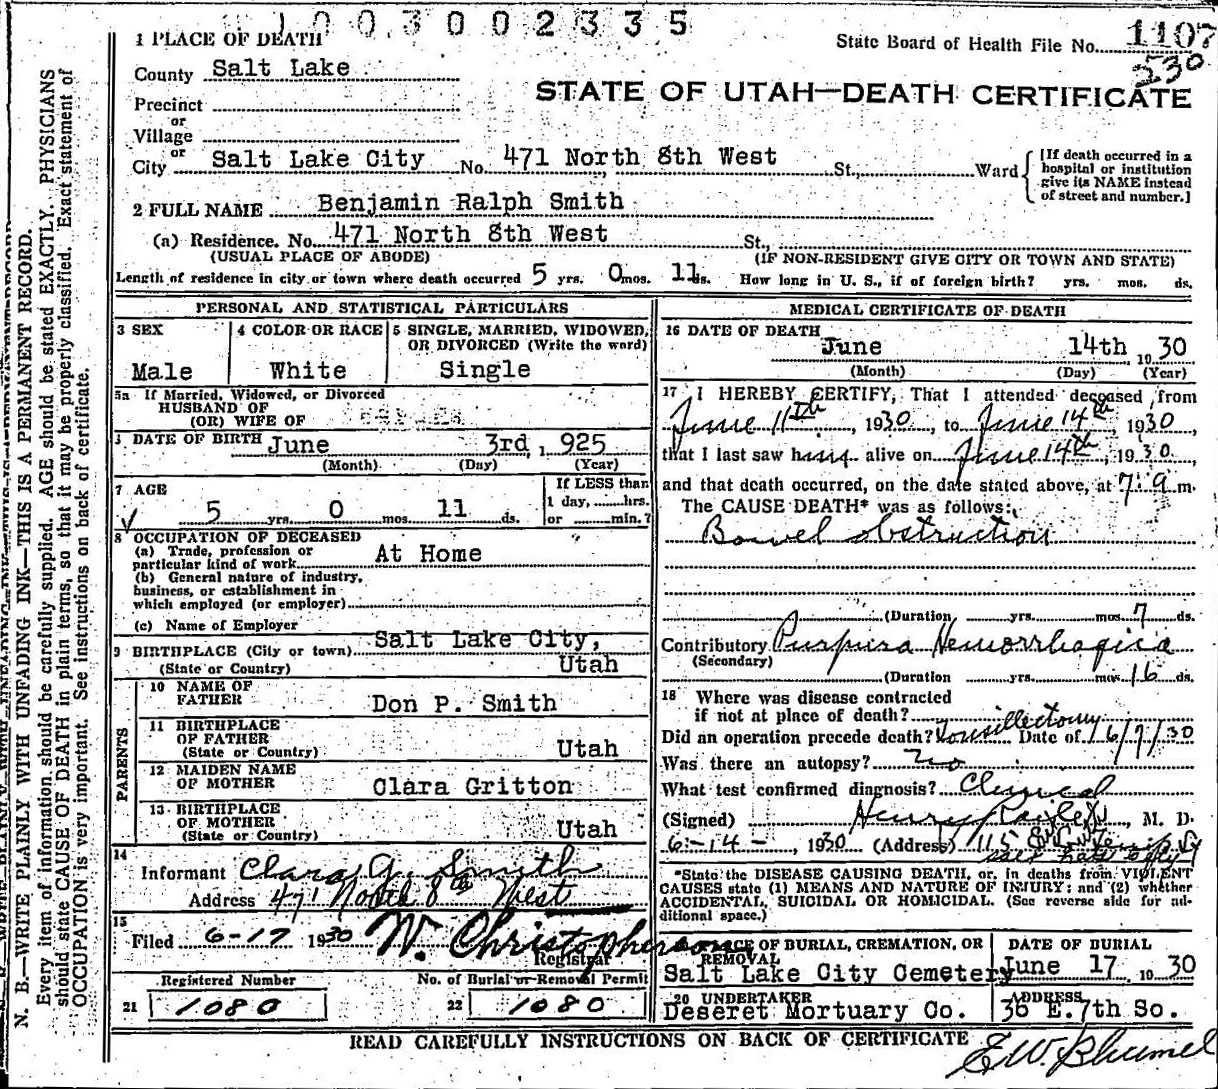 1003002335
1 PLACE OF DEATH
State Board of Health File No. 1107
230
County Salt Lake
STATE OF UTAH—DEATH CERTIFICATE
Precinct
or
Village
or
City Salt Lake City No. 471 North 8th West St., Ward
[If death occurred in a
hospital or institution
give its NAME instead
of street and number.]
2 FULL NAME Benjamin Ralph Smith
(a) Residence. No. 471 North 8th West St.,
(USUAL PLACE OF ABODE) (IF NON-RESIDENT GIVE CITY OR TOWN AND STATE)
Length of residence in city or town where death occurred 5 yrs. 0 mos. 11 ds. How long in U. S., if of foreign birth? yrs. mos. ds.
PERSONAL AND STATISTICAL PARTICULARS
3 SEX
Male
4 COLOR OR RACE
White
5 SINGLE, MARRIED, WIDOWED,
OR DIVORCED (Write the word)
Single
5a If Married, Widowed, or Divorced
HUSBAND OF
(OR) WIFE OF
DATE OF BIRTH June 3rd, 1925
(Month) (Day) (Year)
7 AGE
5 yrs. 0 mos. 11 ds.
If LESS than
1 day, hrs.
or min.?
8 OCCUPATION OF DECEASED
(a) Trade, profession or
particular kind of work At Home
(b) General nature of industry,
business, or establishment in
which employed (or employer)
(c) Name of Employer
9 BIRTHPLACE (City or town) Salt Lake City,
(State or Country) Utah
PARENTS
10 NAME OF
FATHER Don P. Smith
11 BIRTHPLACE
OF FATHER
(State or Country) Utah
12 MAIDEN NAME
OF MOTHER Clara Gritton
13 BIRTHPLACE
OF MOTHER
(State or Country) Utah
14
Informant Clara G. Smith
Address 471 North 8th West
15
Filed 6-17 1930 W. Christopherson
Registrar
Registered Number
21 1080
No. of Burial or Removal Permit
22 1080
MEDICAL CERTIFICATE OF DEATH
16 DATE OF DEATH
June 14th 1930
(Month) (Day) (Year)
17 I HEREBY CERTIFY, That I attended deceased from
June 11th, 1930, to June 14th, 1930,
that I last saw him alive on June 14th, 1930,
and that death occurred, on the date stated above, at 7:9 m.
The CAUSE DEATH* was as follows:
Bowel obstruction
(Duration yrs. mos. 7 ds.
Contributory Purpura Hemorrhagica
(Secondary)
(Duration yrs. mos. 16 ds.
18 Where was disease contracted
if not at place of death?
Did an operation precede death? Tonsillectomy Date of 6/7/30
Was there an autopsy? No
What test confirmed diagnosis? Clinical
(Signed) Henry , M. D.
6-14-, 1930 (Address) 115
*State the DISEASE CAUSING DEATH, or, in deaths from VIOLENT
CAUSES state (1) MEANS AND NATURE OF INJURY: and (2) whether
ACCIDENTAL, SUICIDAL OR HOMICIDAL. (See reverse side for ad-
ditional space.)
PLACE OF BURIAL, CREMATION, OR
REMOVAL
Salt Lake City Cemetery
DATE OF BURIAL
June 17 1930
20 UNDERTAKER
Deseret Mortuary Co.
ADDRESS
36 E. 7th So.
READ CAREFULLY INSTRUCTIONS ON BACK OF CERTIFICATE
E.W. Blumel
N. B.—WRITE PLAINLY WITH UNFADING INK—THIS IS A PERMANENT RECORD.
Every item of information should be carefully supplied. AGE should be stated EXACTLY. PHYSICIANS
should state CAUSE OF DEATH in plain terms, so that it may be properly classified. Exact statement of
OCCUPATION is very important. See instructions on back of certificate.